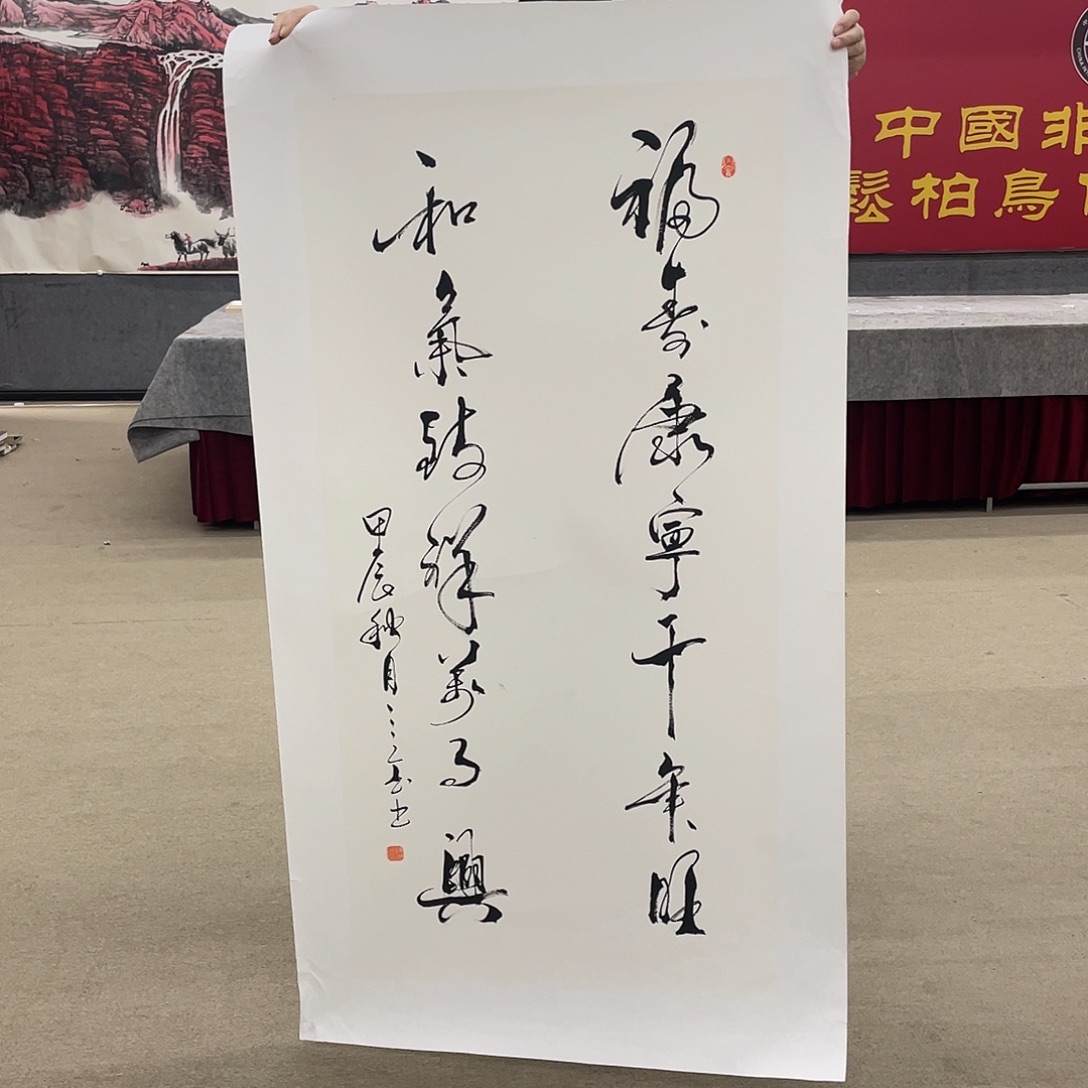 福壽康寧千年旺
和氣致祥萬事興
甲辰秋月
中國非
鬆柏鳥